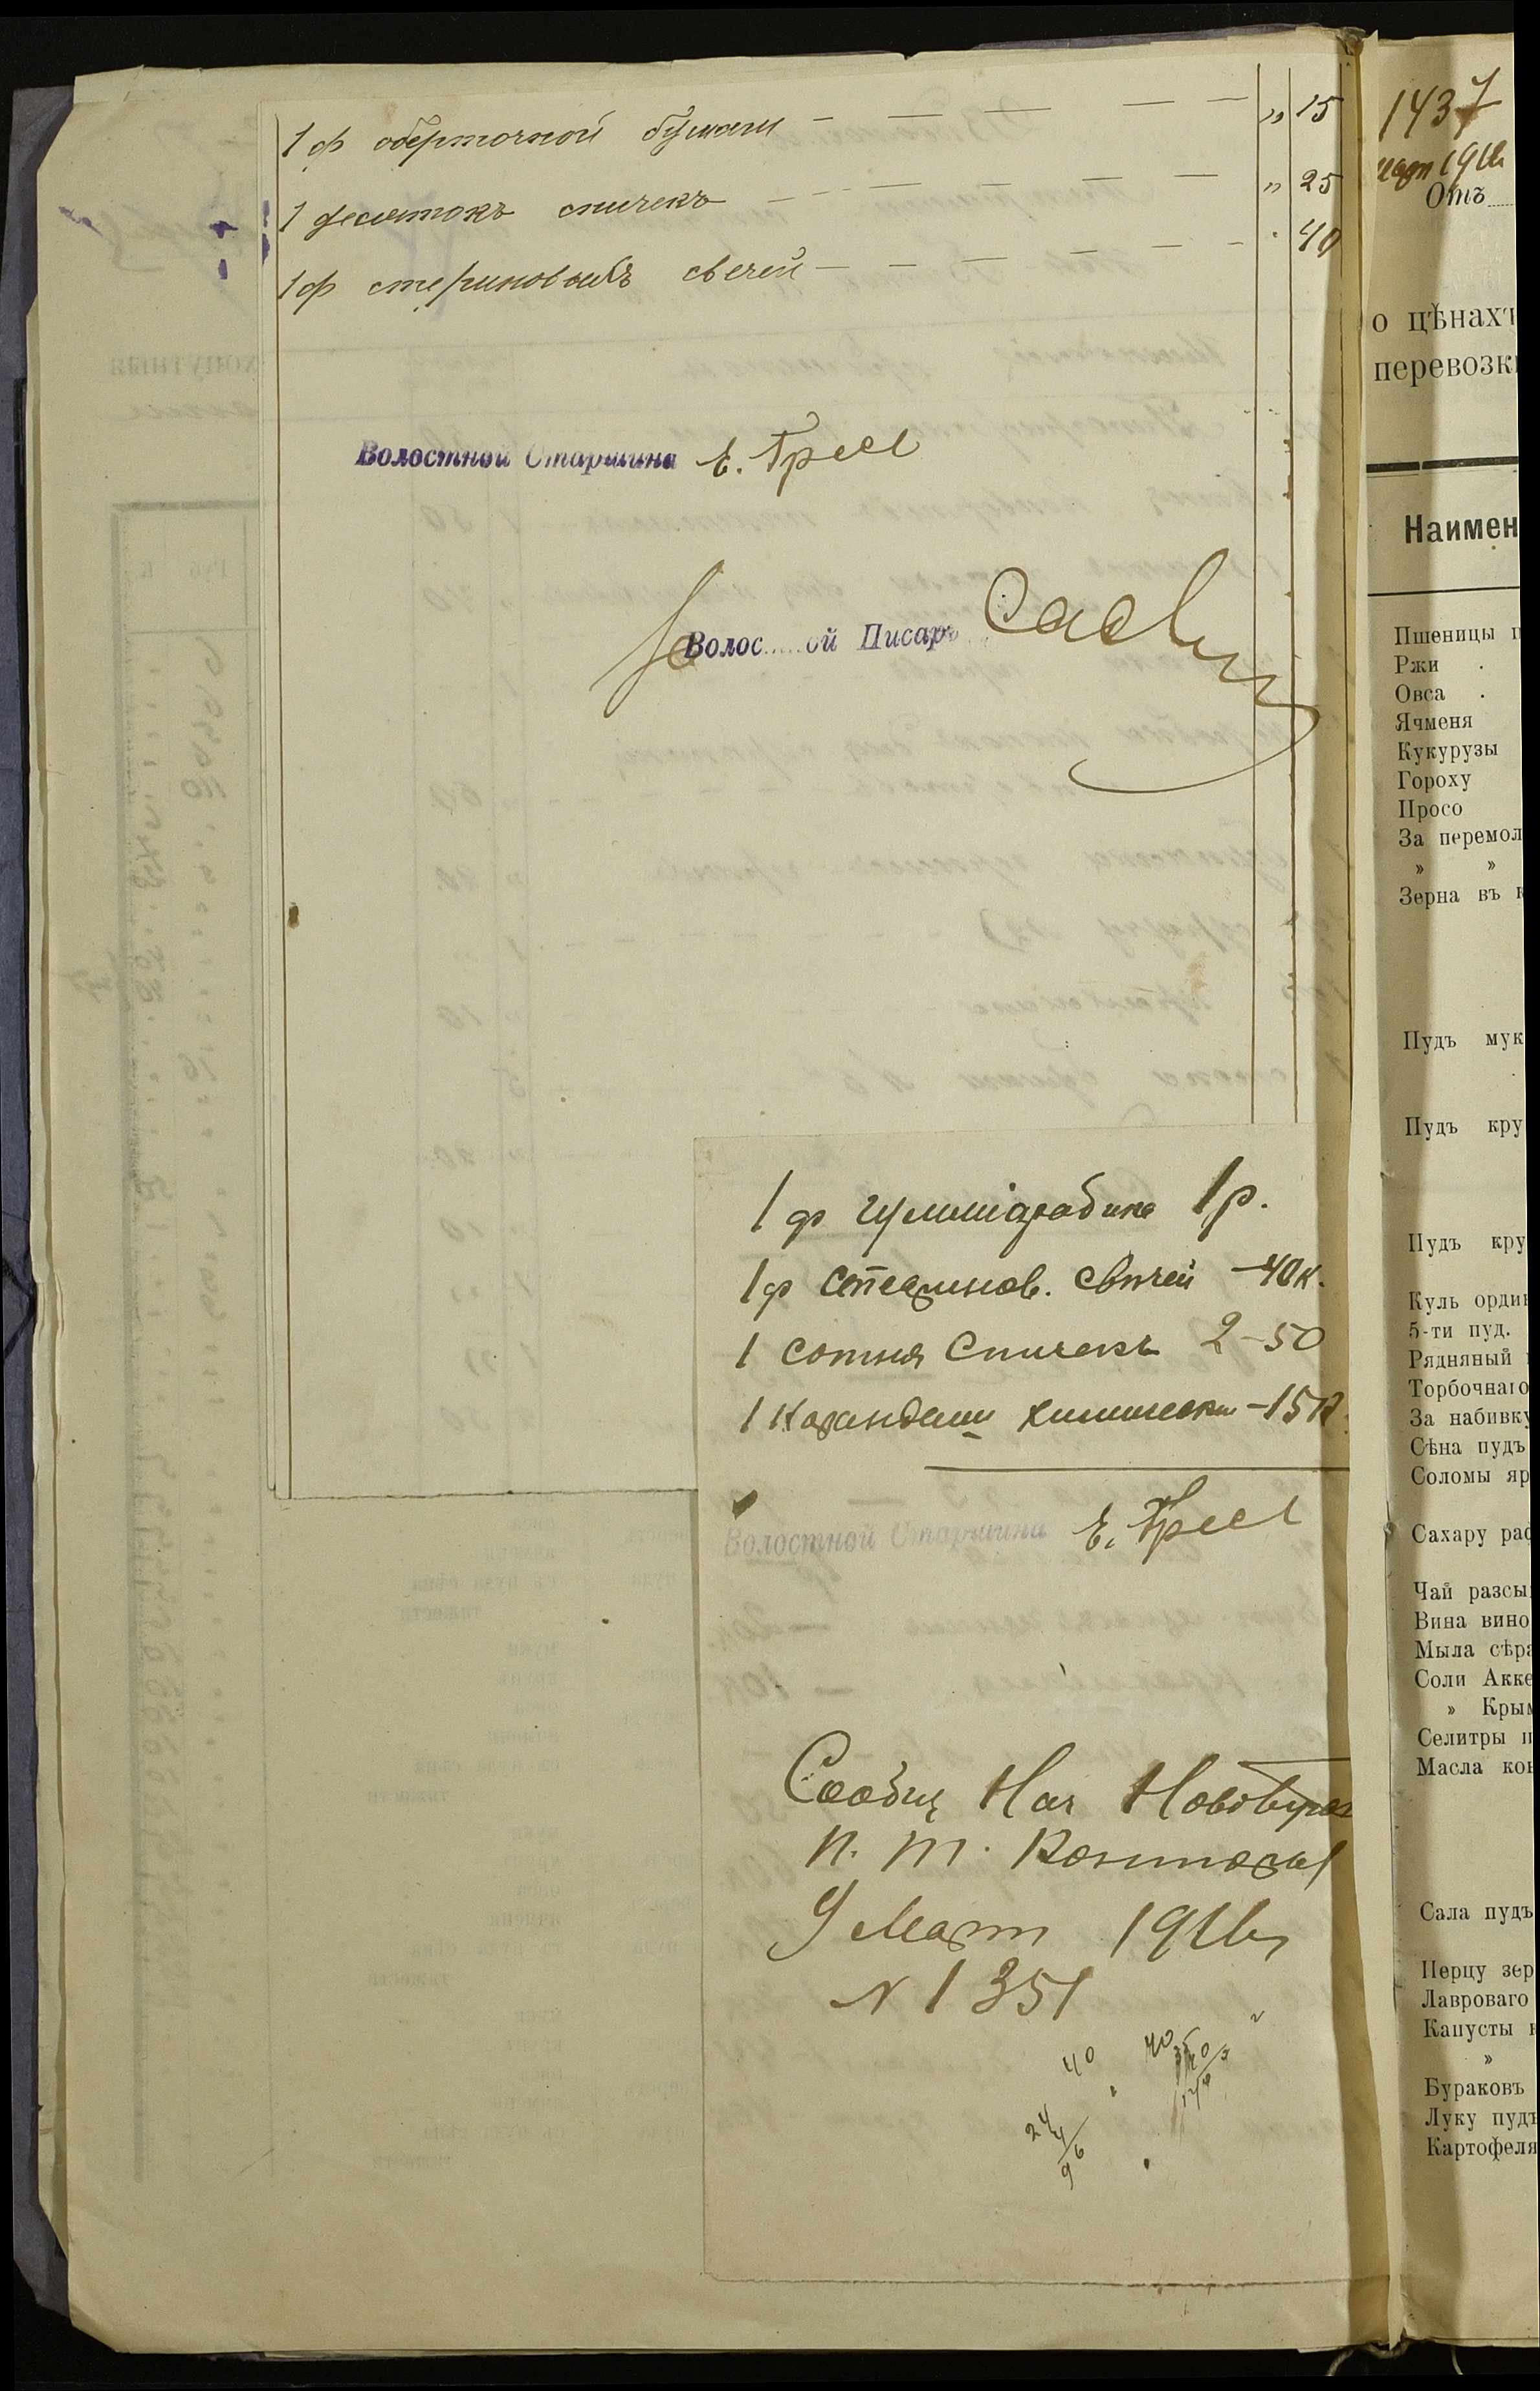 1 ф оберточной бумаги — — — — " 15
1 десятокъ спичекъ — — — — " 25
1 ф стериновыхъ свечей — — — — " 40
Волостной Старшина Е.
Волос ой Писарь
1 ф гуммиарабика 1 р.
1 ф стеаринов. свѣчей — 40 к.
1 сотня спичекъ 2-50
1 карандаш химическ — 15 к.
Волостной Старшина Е.
Сообщ Нач
п. т. Конторы
9 Март 1916 г
N 1351
40 40
24
4
96
1437
март 1916
Отъ
о цѣнахъ
перевозк
Наимен
Пшеницы п
Ржи .
Овса .
Ячменя
Кукурузы
Гороху
Просо
За перемол
» »
Зерна въ к
Пудъ мук
Пудъ кру
Пудъ кру
Куль орди
5-ти пуд.
Рядняный
Торбочнаго
За набивку
Сѣна пудъ
Соломы яр
Сахару раф
Чай разсы
Вина вино
Мыла сѣра
Соли Акке
» Крым
Селитры п
Масла кон
Сала пудъ
Перцу зер
Лавроваго
Капусты к
»
Бураковъ
Луку пудъ
Картофеля